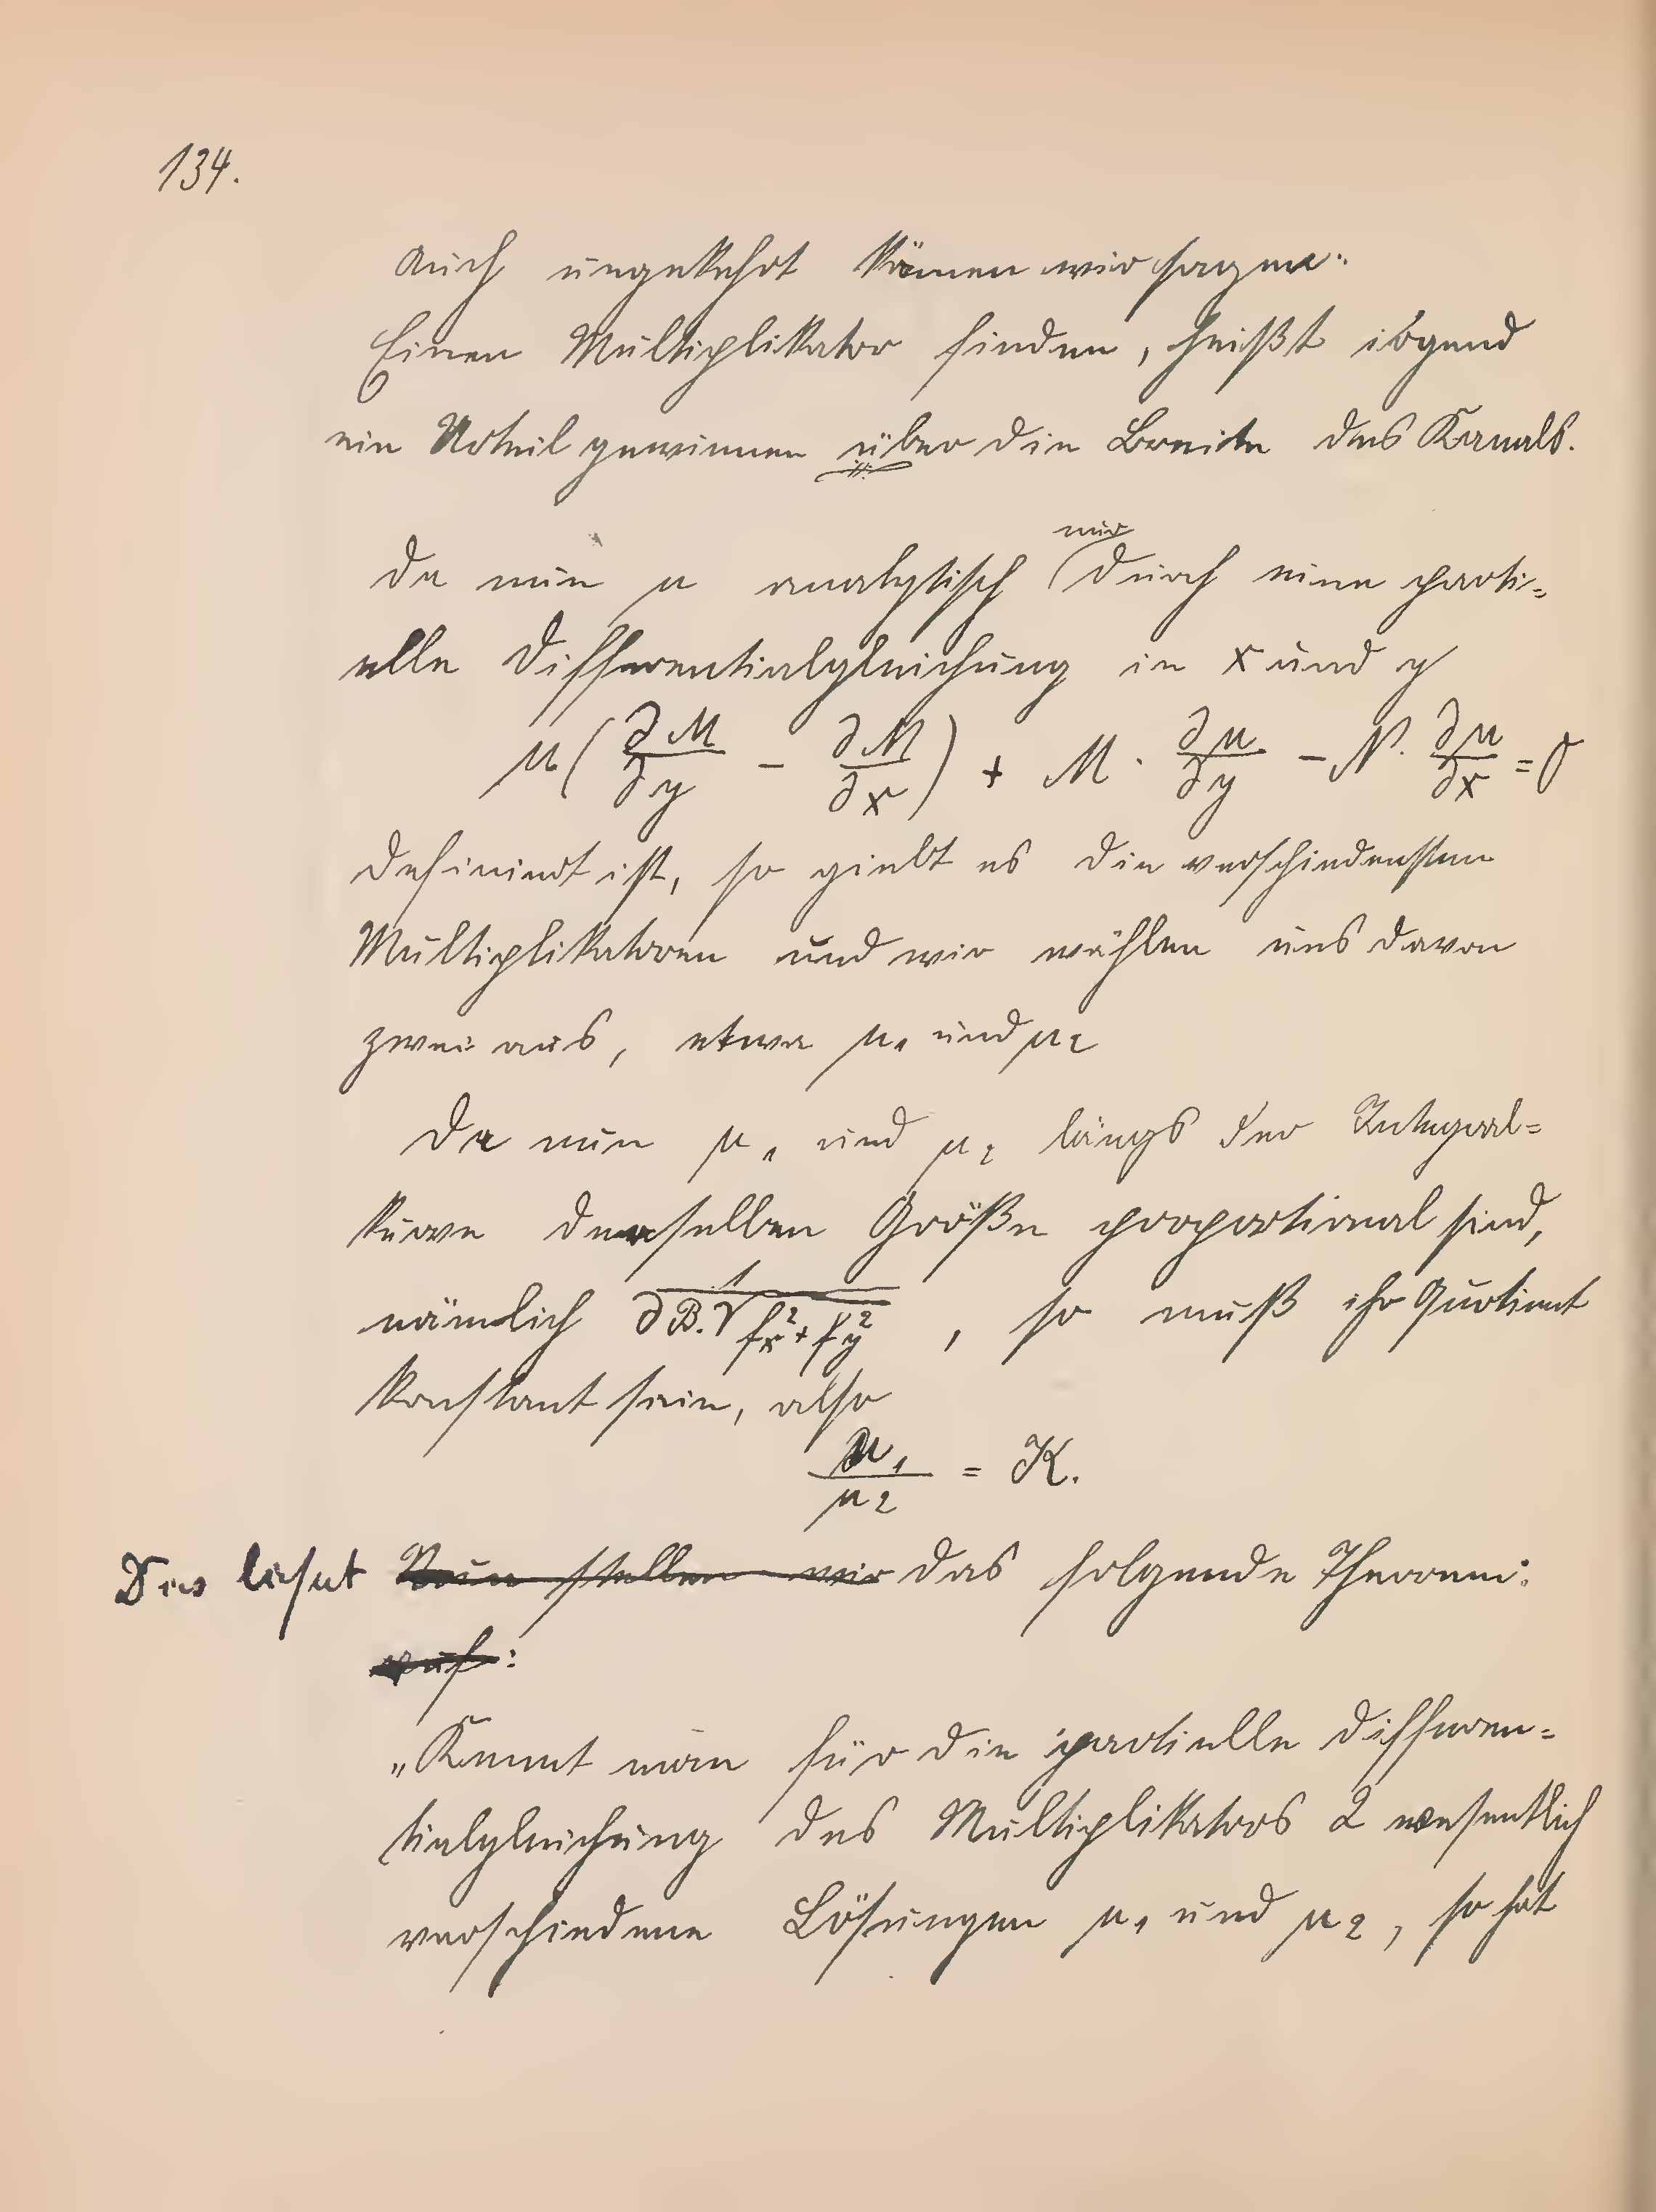 134.
Auch ungekehrt können wir sagen:
Einen Multiplikator finden, heißt irgend
ein Urteil gewinnen über die Breite des Kanals.
nur
Da nun μ analytisch durch eine parti-
elle Differentialgleichung in x und y
μ(∂M/∂y - ∂N/∂x) + M · ∂μ/∂y - N · ∂μ/∂x = 0
definiert ist, so giebt es die verschiedensten
Multiplikatoren und wir wählen uns davon
zwei aus, etwa μ₁ und μ₂
Da nun μ₁ und μ₂ längs der Integral-
kurve derselben Größe proportional sind,
nämlich 1/(∂B.√(fx²+fy²)), so muß ihr Quotient
konstant sein, also
μ₁/μ₂ = K.
Dies liefert Nun stellen wir das folgende Theorem:
auf:
„Kennt man für die partielle Differen-
tialgleichung des Multiplikators 2 wesentlich
verschiedene Lösungen μ₁ und μ₂, so hat